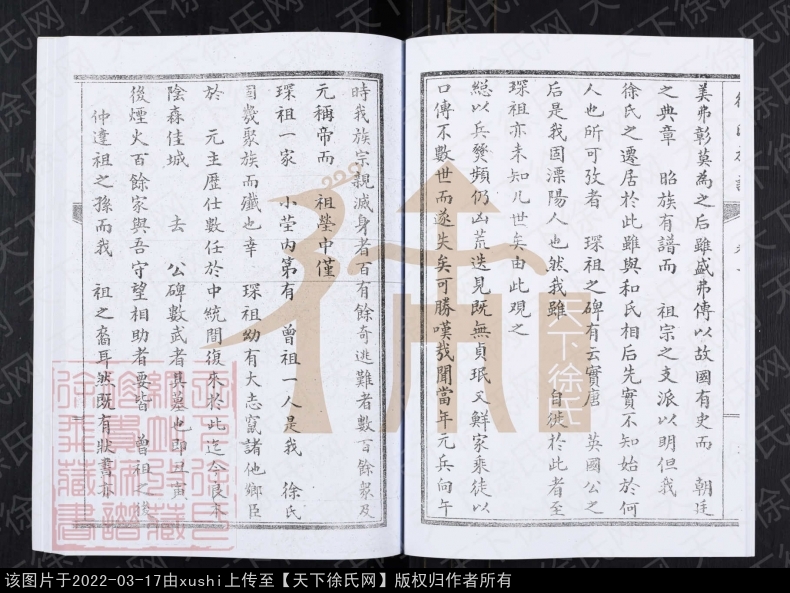 美弗彰莫為之后雖盛弗傳以故國有史而 朝廷
之典章 昭族有譜而 祖宗之支派以明但我
徐氏之遷居於此雖與和氏相后先實不知始於何
人也所可攷者 琛祖之碑有云實唐 英國公之
后是我固溧陽人也然我雖 自徙於此者至
琛祖亦未知凡世矣由此观之
緫以兵燹頻仍凶荒迭見既無貞珉又鮮家乘徒以
口傳不數世而遂失矣可勝嘆哉聞當年元兵向午
時我族宗親滅身者百有餘奇逃難者數百餘衆及
元稱帝而 祖塋中僅
琛祖一家 小塋內第有 曾祖一人是我 徐氏
幾聚族而殲也幸 琛祖幼有大志竄諸他鄉臣
於 元主歷仕數任於中統間復來於此迄今
陰森佳城 去 公碑數武者其墓也即丑寅
後煙火百餘家與吾守望相助者要皆 曾祖之後
仲達祖之孫而我 祖之裔耳然既有狀書亦
天下徐氏网
天下徐氏
该图片于2022-03-17由xushi上传至【天下徐氏网】版权归作者所有